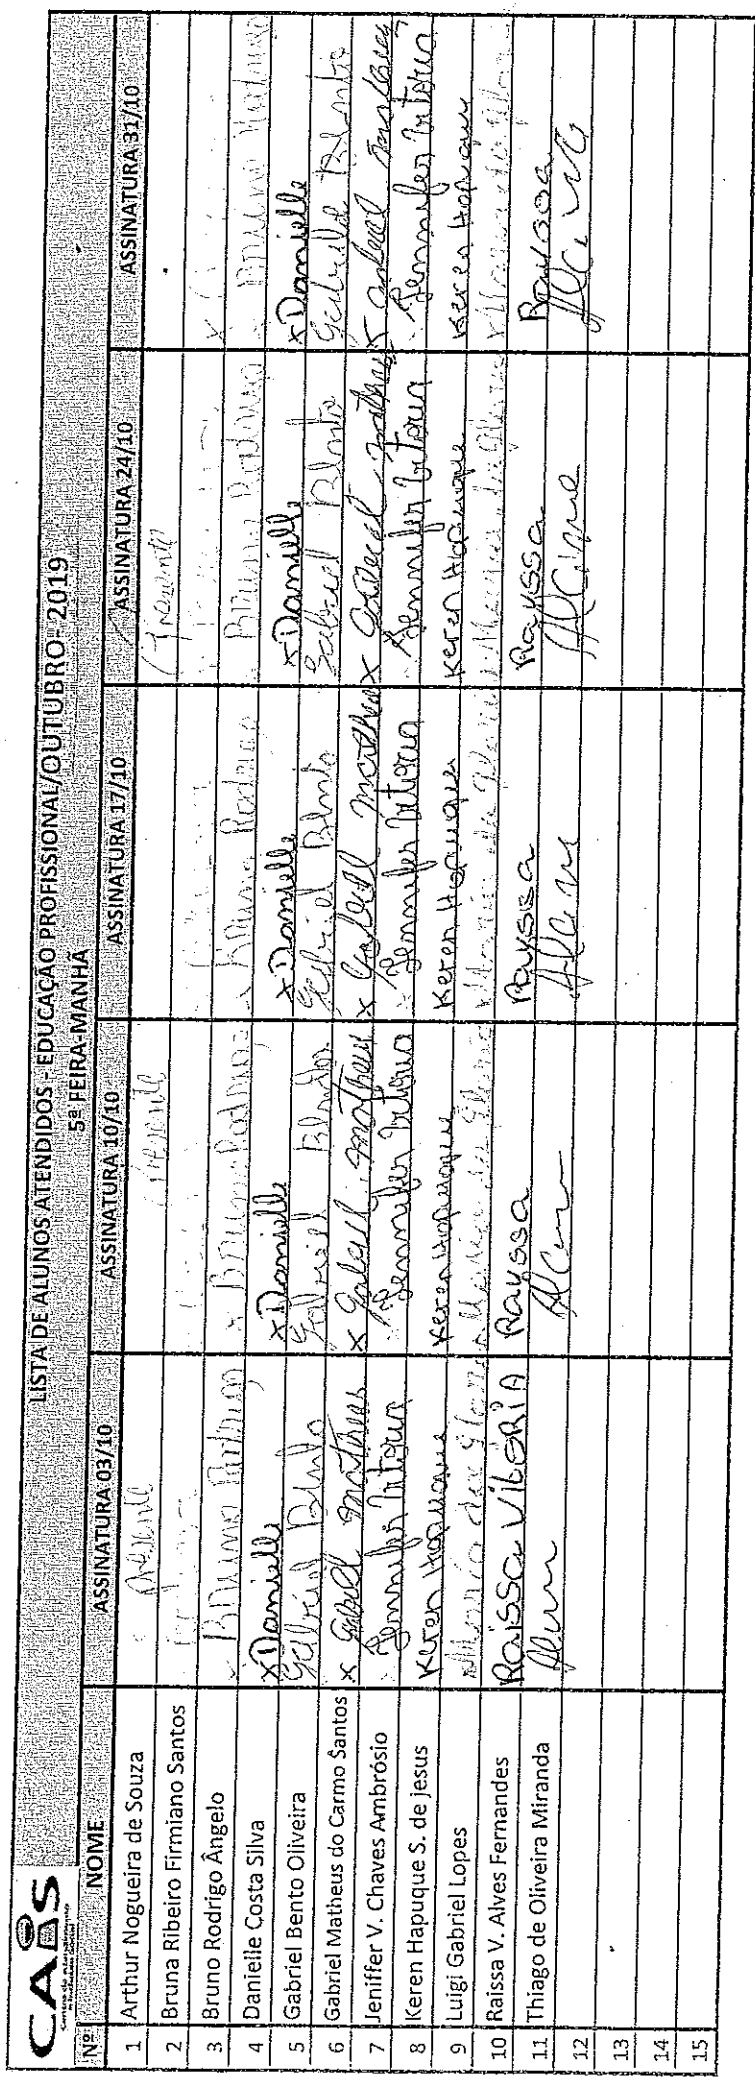 CAIS
LISTA DE ALUNOS ATENDIDOS - EDUCAÇÃO PROFISSIONAL/OUTUBRO- 2019
5ª FEIRA-MANHÃ
Nº NOME ASSINATURA 03/10 ASSINATURA 10/10 ASSINATURA 17/10 ASSINATURA 24/10 ASSINATURA 31/10
1 Arthur Nogueira de Souza Presente Presente Presente
2 Bruna Ribeiro Firmiano Santos
3 Bruno Rodrigo Ângelo Bruno Rodrigo x Bruno Rodrigo x Bruno Rodrigo Bruno Rodrigo Bruno Rodrigo
4 Danielle Costa Silva x Danielle x Danielle x Danielle x Danielle x Danielle
5 Gabriel Bento Oliveira Gabriel Bento Gabriel Bento Gabriel Bento Gabriel Bento Gabriel Bento
6 Gabriel Matheus do Carmo Santos x Gabriel Matheus x Gabriel Matheus x Gabriel Matheus x Gabriel Matheus x Gabriel Matheus
7 Jeniffer V. Chaves Ambrósio Jennifer Vitoria Jennifer Vitoria Jennifer Vitoria Jennifer Vitoria Jennifer Vitoria
8 Keren Hapuque S. de jesus Keren Hapuque Keren Hapuque Keren Hapuque Keren Hapuque Keren Hapuque
9 Luigi Gabriel Lopes Maria da Gloria Maria da Gloria Maria da Gloria Maria da Gloria Maria da Gloria
10 Raissa V. Alves Fernandes Raissa ViLORiA Rayssa Rayssa Rayssa Rayssa
11 Thiago de Oliveira Miranda
12
13
14
15